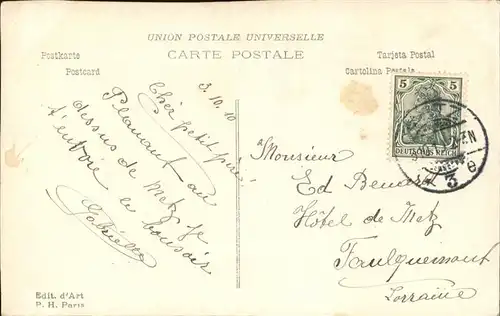 UNION POSTALE UNIVERSELLE
CARTE POSTALE
Postkarte
Postcard
Tarjeta Postal
Cartolina Postale
5 5
DEUTSCHES REICH
3
e
3.10.10
Chér petit père
Planant au
dessus de Metz je
t'envoie le bonsoir
Gabrielle
Monsieur
Ed
Hôtel de Metz
Faulquemont
Lorraine
Edit. d'Art
P. H. Paris